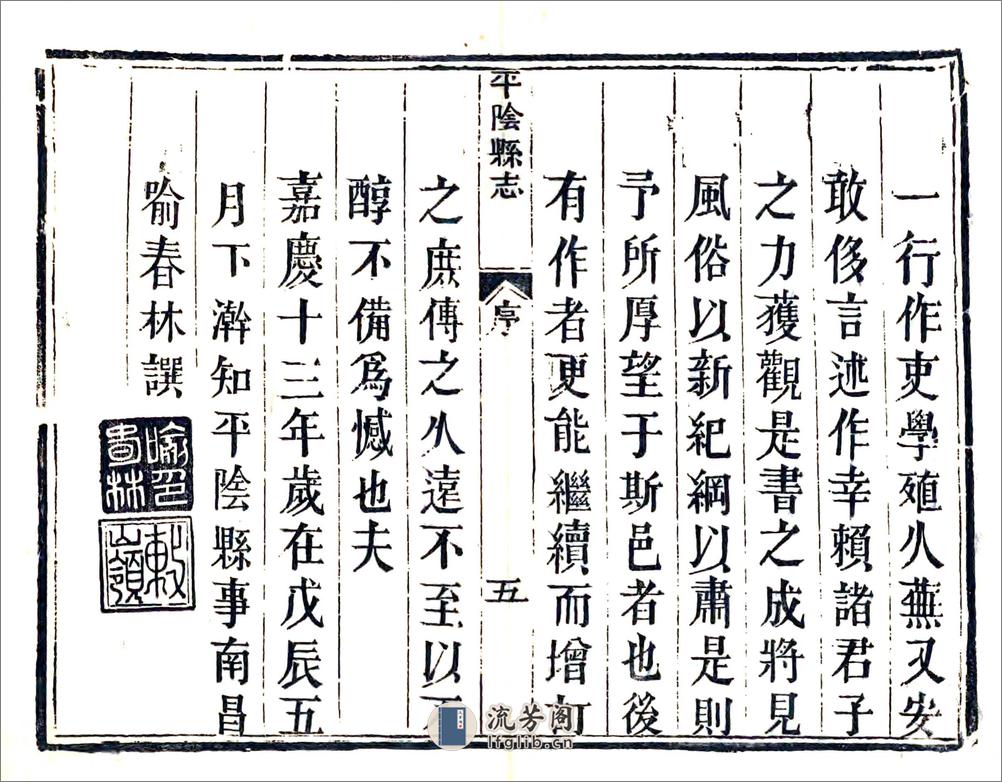 一行作吏學殖久蕪又安
敢侈言述作幸賴諸君子
之力獲觀是書之成將見
風俗以新紀綱以肅是則
予所厚望于斯邑者也後
有作者更能繼續而增訂
平陰縣志
序
五
之庶傳之久遠不至以不
醇不備爲憾也夫
嘉慶十三年歲在戊辰五
月下澣知平陰縣事南昌
喻春林譔
喻印春林
流芳阁
lfglib.cn